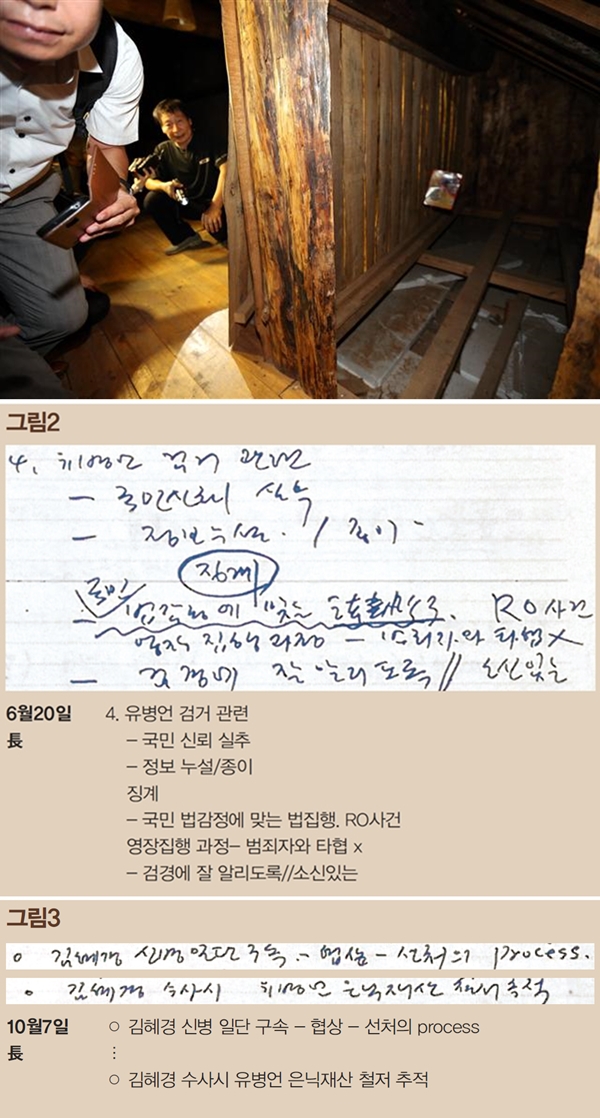 그림2
4. 유병언 검거 관련
– 국민신뢰 실추
– 정보누설. / 종이
징계
국민
– 법감정에 맞는 法執行으로. RO사건
영장 집행 과정 – 범죄자와 타협 x
– 검경에 잘 알리도록 // 소신있는
6월20일 4. 유병언 검거 관련
長 – 국민 신뢰 실추
– 정보 누설/종이
징계
– 국민 법감정에 맞는 법집행. RO사건
영장집행 과정– 범죄자와 타협 x
– 검경에 잘 알리도록//소신있는
그림3
○ 김혜경 신병 일단 구속 – 협상 – 선처의 process.
○ 김혜경 수사시 유병언 은닉재산 철저 추적
10월7일 ○ 김혜경 신병 일단 구속 – 협상 – 선처의 process
長 ⋮
○ 김혜경 수사시 유병언 은닉재산 철저 추적